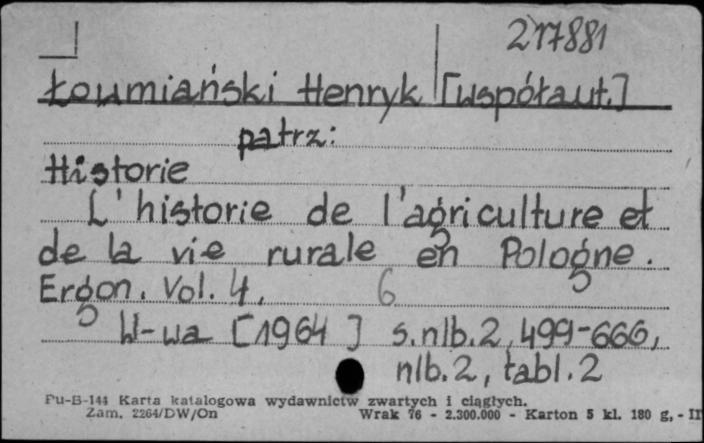 217881
Łoumiański Henryk [współaut.]
patrz:
Historie
L'histoire de l'agriculture et
de la vie rurale en Pologne.
Ergon. Vol. 4.
6
W-wa [1964] s.nlb.2, 499-666,
nlb.2, tabl.2
Pu-B-144 Karta katalogowa wydawnictw zwartych i ciągłych.
Zam. 2264/DW/On Wrak 76 - 2.300.000 - Karton 5 kl. 180 g. - II